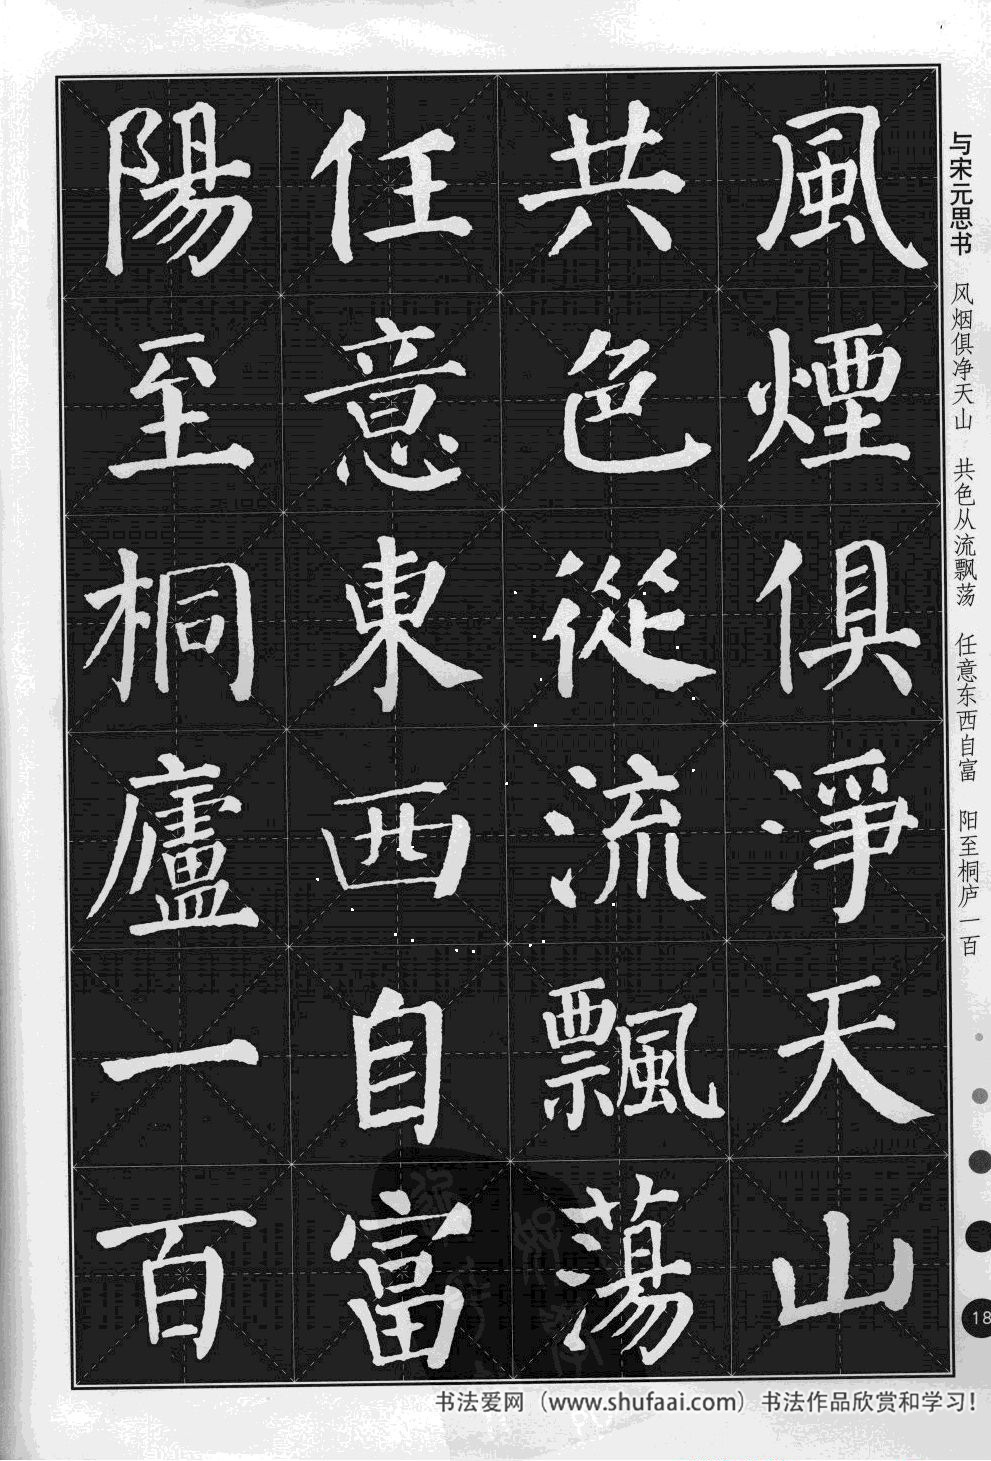 風煙俱淨天山
共色從流飄蕩
任意東西自富
陽至桐廬一百
与宋元思书 风烟俱净天山 共色从流飘荡 任意东西自富 阳至桐庐一百
18
书法爱网（www.shufaai.com）书法作品欣赏和学习！